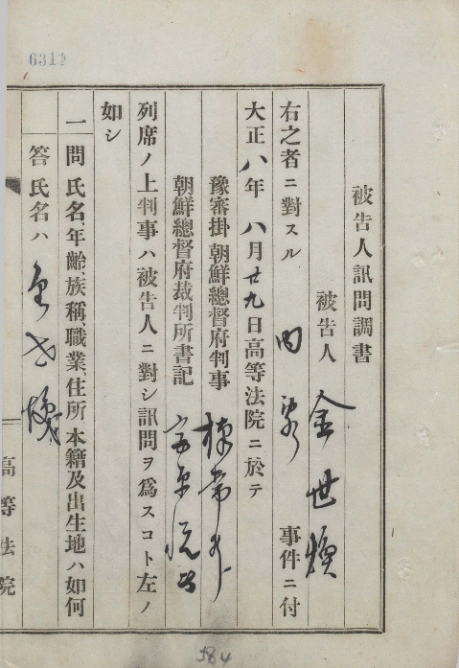 被告人訊問調書
被告人 金世煥
右之者ニ對スル 内亂 事件ニ付
大正八年八月廿九日高等法院ニ於テ
豫審掛 朝鮮總督府判事 楠常藏
朝鮮總督府裁判所書記 宮原悦次
列席ノ上判事ハ被告人ニ對シ訊問ヲ爲スコト左ノ
如シ
一 問 氏名、年齡、族稱、職業、住所、本籍及出生地ハ如何
答 氏名ハ 金世煥
高等法院